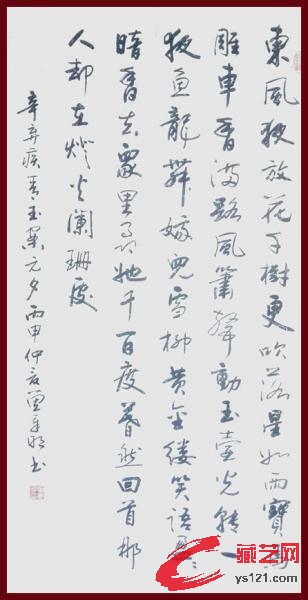 東風夜放花千樹更吹落星如雨寶馬
雕車香滿路風簫聲動玉壺光轉一
夜魚龍舞蛾兒雪柳黄金縷笑語盈〻
暗香去眾里尋她千百度驀然回首那
人却在燈火闌珊處
辛弃疾青玉案元夕丙申仲夏書
藏艺网
ys121.com